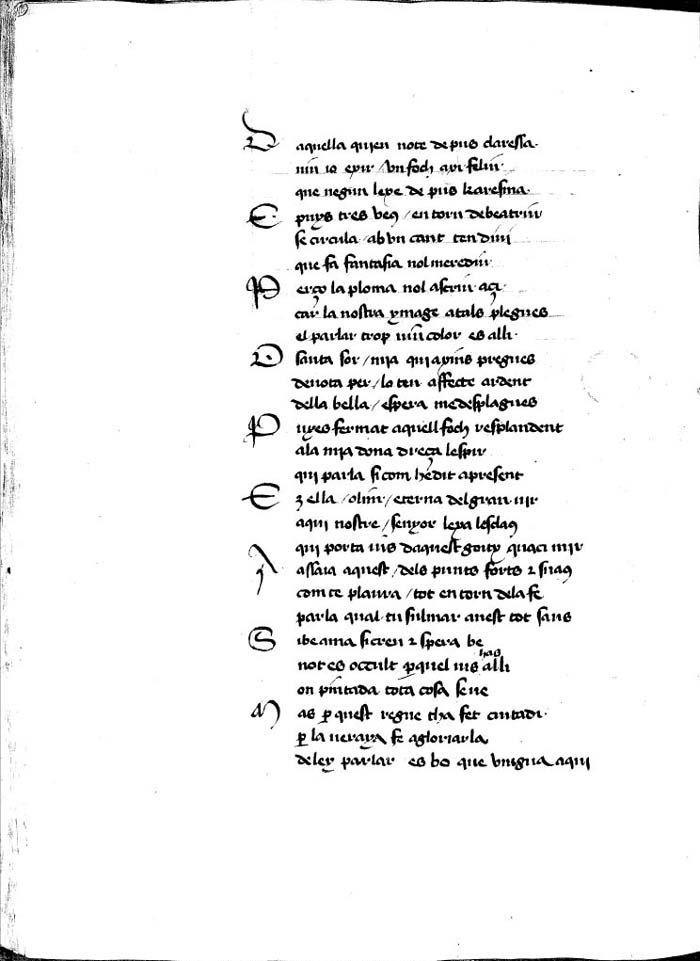 D aquella quieu note de pus claressa·
viu io exir / vn foch axi feliu·
que negun lexe de pus karesma·
E puys tres veus / entorn debeatriu
se circula / ab vn cant ten diui
que fa fantasia nol merediu·
P erço la ploma nol ascriu açi·
car la nostra ymage atals plegues
el parlar trop viu color es alli·
O santa sor / mia qui axins pregues
deuota per / lo teu affecte ardent
della bella / espera medesplagues
P uyes fermat aquell foch resplandent
ala mia dona dreça lespir
qui parla sicom he dit apresent
E z ella / o lum / eterna del gran vir
aqui nostre / senyor lexa lesclaus
qui porta uis daquest goitx quaci mir
A assaia aquest / dels punts forts z suaus
com te plaura / tot entorn dela fe
parla qual tu sulmar anest tot saus
S ibe ama si creu z spera be
not es occult perquel uis has alli
on pintada tota cosa se ue
M as per quest regne tha fet ciutadi·
per la ueraya fe a gloriarla
de ley parlar es bo que vinguа aqui